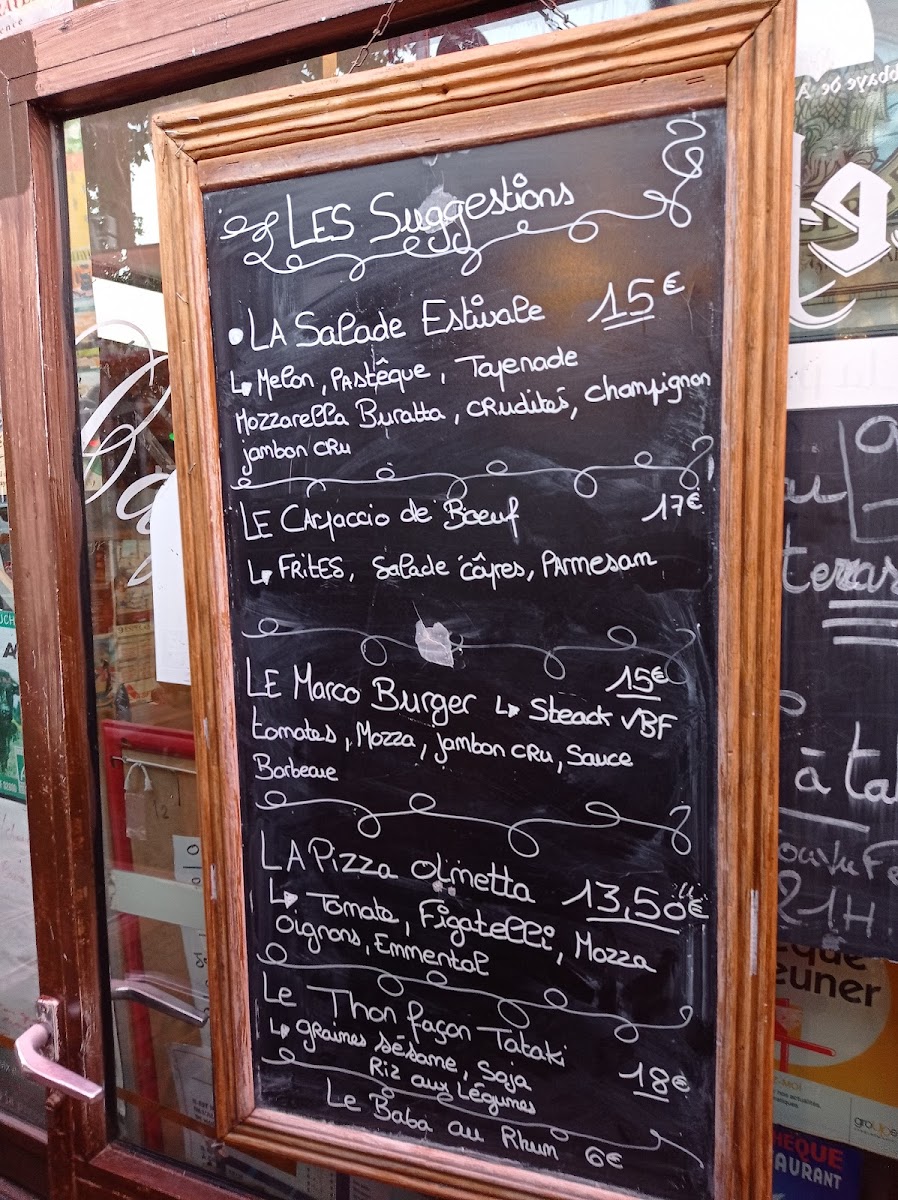 LES Suggestions
LA Salade Estivale 15€
Melon, PASTÊQUE, Tapenade
Mozzarella Buratta, CRUDITÉS, Champignon
jambon CRU
LE CARpaccio de Boeuf 17€
FRITES, Salade câpres, PARMESAN
LE Marco Burger 15€
Steack VBF
tomates, Mozza, jambon CRU, Sauce
Barbecue
LA Pizza Olmetta 13,50€
Tomate, Figatelli, Mozza
Oignons, Emmental
Le Thon façon Tataki
graines sésame, Soja 18€
Riz aux Légumes
Le Baba au Rhum 6€
à ta
21H
euner